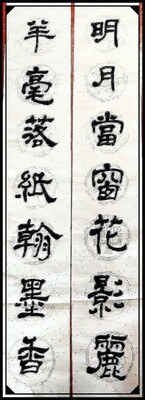 明月當窗花影麗
羊毫落紙翰墨香